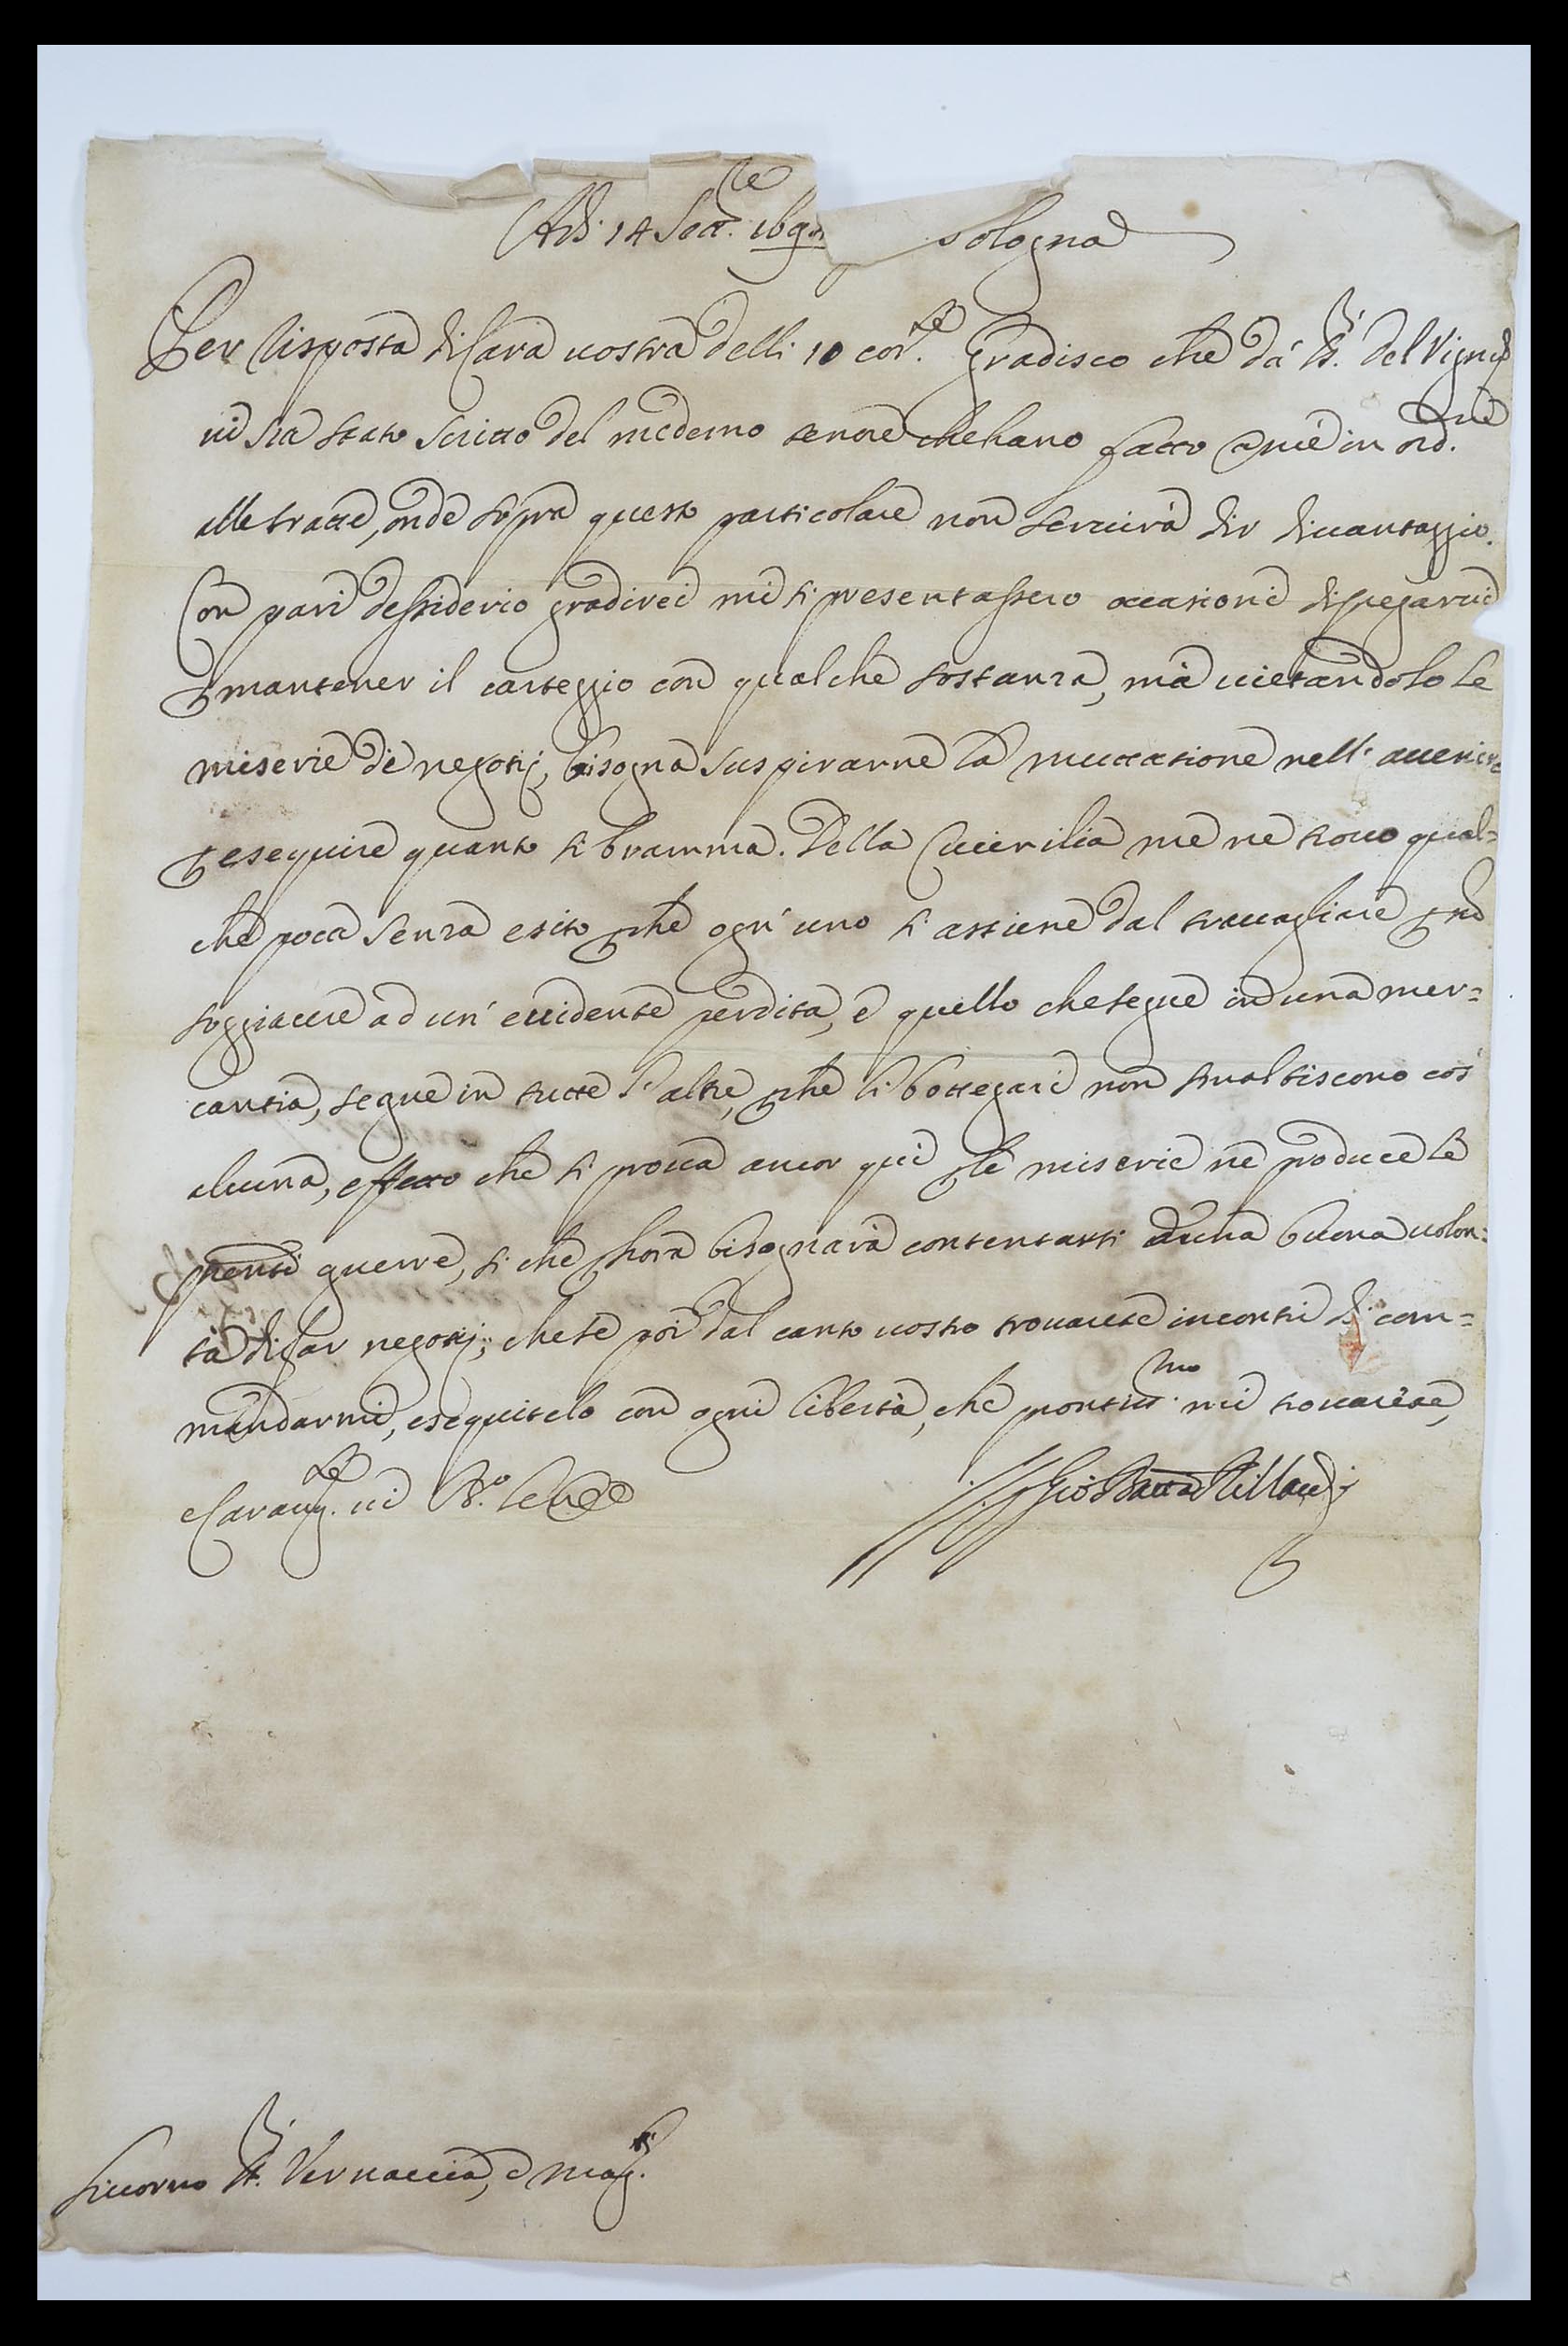 Adi 14 Sett.re 169 Bologna
Per risposta di cara vostra delli 10 cor.te gradisco che dà SS.ri del Vigna
vi sia stato scritto del medemo tenore che hano fatto à me in ord.ne
alle tratte, onde sopra questo particolare non servirà dir divantaggio.
Con pari dessiderio gradirei mi si presentassero occasioni
p mantener il carteggio con qualche sostanza, mà vietandolo le
miserie de negotij, bisogna suspirarne la muttatione nell' avenire
p eseguire quanto si bramma. Della me ne trovo qual=
che poca senza esito, p che ogn' uno si astiene dal travagliare p no
soggiacere ad un' evidente perdita, e quello che segue in una mer=
cantia, segue in tutte l' altre, p che li bottegari non smaltiscono cos'
alcuna, effetto che si prova ancor qui p le miserie ne produce le
p~nti guerre, si che p hora bisognarà contentarsi d'una buona volon=
tà di far negotij; che se poi dal canto vostro trovarete incontri di com=
mandarmi, esequitelo con ogni libertà, che prontiss.mo mi trovarete,
e caram.te vi B.o le
Gio Batta
Livorno SS.ri Vernaccia, e mag.